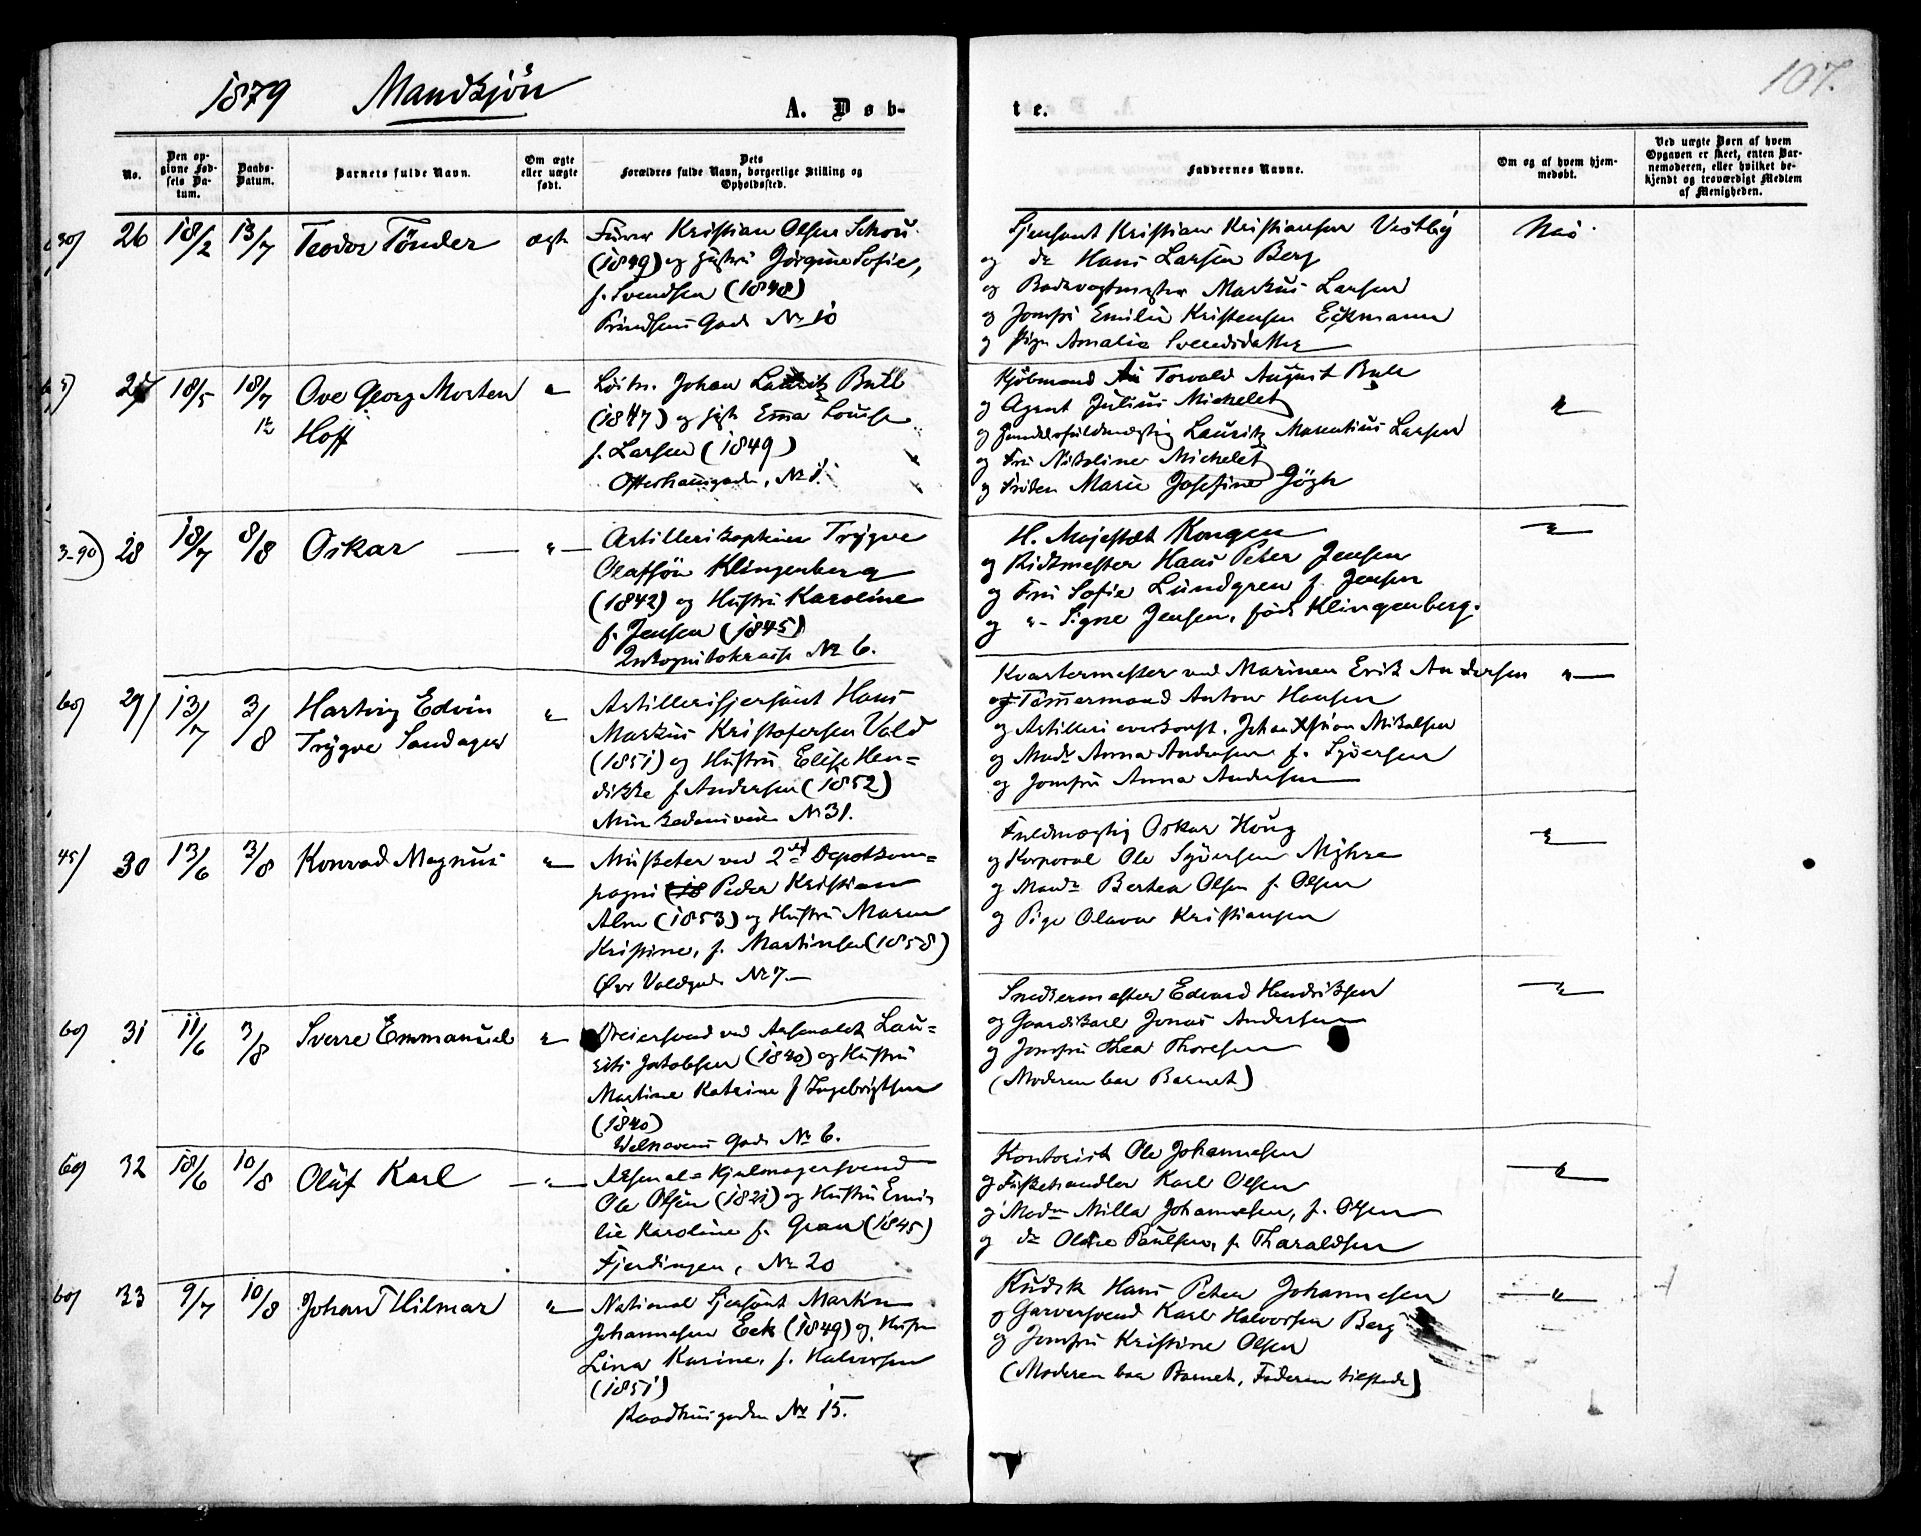 1879 Mandkjön
A. Døb-
No.
Den op-
givne Fød-
sels Da-
tum.
Daabs-
Datum.
Barnets fulde Navn.
Om ægte
eller uægte
født.
Dets
Forældres fulde Navn, borgerlige Stilling og
Opholdssted.
26 18/2 13/7 Teodor Tönder ægte
Kristian Olsen Schou
(1849) og Hustru Jörgine Sofie,
f. Svendsen (1848)
Prindsens Gade Nr 10
27 18/5 18/7 Ove Georg Morten
Hoff
Löitn. Johan Lauritz Bull
(1847) og Hust. Emma Louise
f. Larsen (1849)
No 1.
3-90) 28 18/7 8/8 Oskar — " —
Artillerikaptein Trygve
Olafsön Klingenberg
(1842) og Hustru Karoline
f. Jensen (1845)
Inkognitoterrasse No 6.
60) 29 13/7 3/8 Hartvig Edvin
Trygve Sandager "
Artillerisjersant Hans
Markus Kristofersen Vold
(1851) og Hustru Elise Hen-
dikke f. Andersen (1852)
Munkedamsveien No 31.
45) 30 13/6 3/8 Konrad Magnus "
Musketer ved 2den Depotkom-
pagni Peder Kristian
Alm (1853) og Hustru Maren
Kristine, f. Martinsen (1858)
Övr Voldgade No 7 —
60) 31 11/6 3/8 Sverre Emmanuel "
Dreiersvend ved Arsenalet Lau-
rits Jakobsen (1840) og Hustru
Martine Katrine f Ingebrigtsen
(1840)
Welhavens Gade No 6.
60) 32 18/6 10/8 Oluf Karl — " —
Arsenal-Hjulmagersvend
Ole Olsen (1821) og Hustru Emi-
lie Karoline f. Gran (1845)
Fjerdingen, No 20
60) 33 9/7 10/8 Johan Hilmar "
National Sjersant Martin
Johannesen Eek (1849) og Hustru
Lina Karine, f. Halvorsen
(1851)
Raadhusgaden No 15.
107.
te.
Faddernes Navne.
Om og af hvem hjem-
medøbt.
Ved uægte Børn af hvem
Opgaven er skeet, enten Bar-
nemoderen, eller hvilket be-
kjendt og troværdigt Medlem
af Menigheden.
Sjersant Kristian Kristiansen Vestby Nei
og do Hans Larsen Berg
og Markus Larsen
og Jomfru Emilie Kristensen Eckmann
og Pige Amalie Svendsdatter
Kjöbmand Torvald August Bull
og Agent Julius Michelet "
og Handelsfuldmægtig Lauritz Marentius Larsen
og Fru Nikoline Michelet
og Fröken Marie Josefine
H. Majestæt Kongen "
og Ridtmester Hans Peter Jensen
og Fru Sofie Lundgren f. Jensen
og " Signe Jensen, född Klingenberg.
Kvartermester ved Marinen Erik Andersen "
og Tömmermand Anton Hansen
og Artilleri Johan Mikalsen
og Mad. Anna Andersen f. Syversen
og Jomfru Anna Andersen
Fuldmægtig Oskar Houg "
og Korporal Ole Syversen Myhre
og Madm Berthea Olsen f. Olsen
og Pige Olava Kristiansen
Snedkermester Edvard Hendriksen "
og Gaardskarl Jonas Andersen
og Jomfru Thea Thoresen
(Moderen bar Barnet)
Kontorist Ole Johannesen "
og Fiskehandler Karl Olsen
og Madm Milla Johannesen, f. Olsen
og do Oline Paulsen, f. Tharaldsen
Kudsk Hans Peter Johannesen "
og Garversvend Karl Halvorsen Berg
og Jomfru Kristine Olsen
(Moderen bar Barnet, Faderen tilstede)